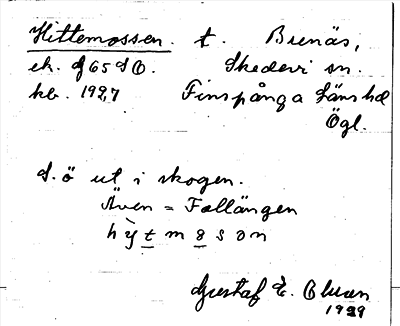 Hittemossen. t. Brenäs,
ek. 9f65dO. Skedevi sn.
kb. 1927 Finspånga Läns hd
Ögl.
S. ö ut i skogen.
Även = Follängen
hytmosson
Gustaf E.
1929